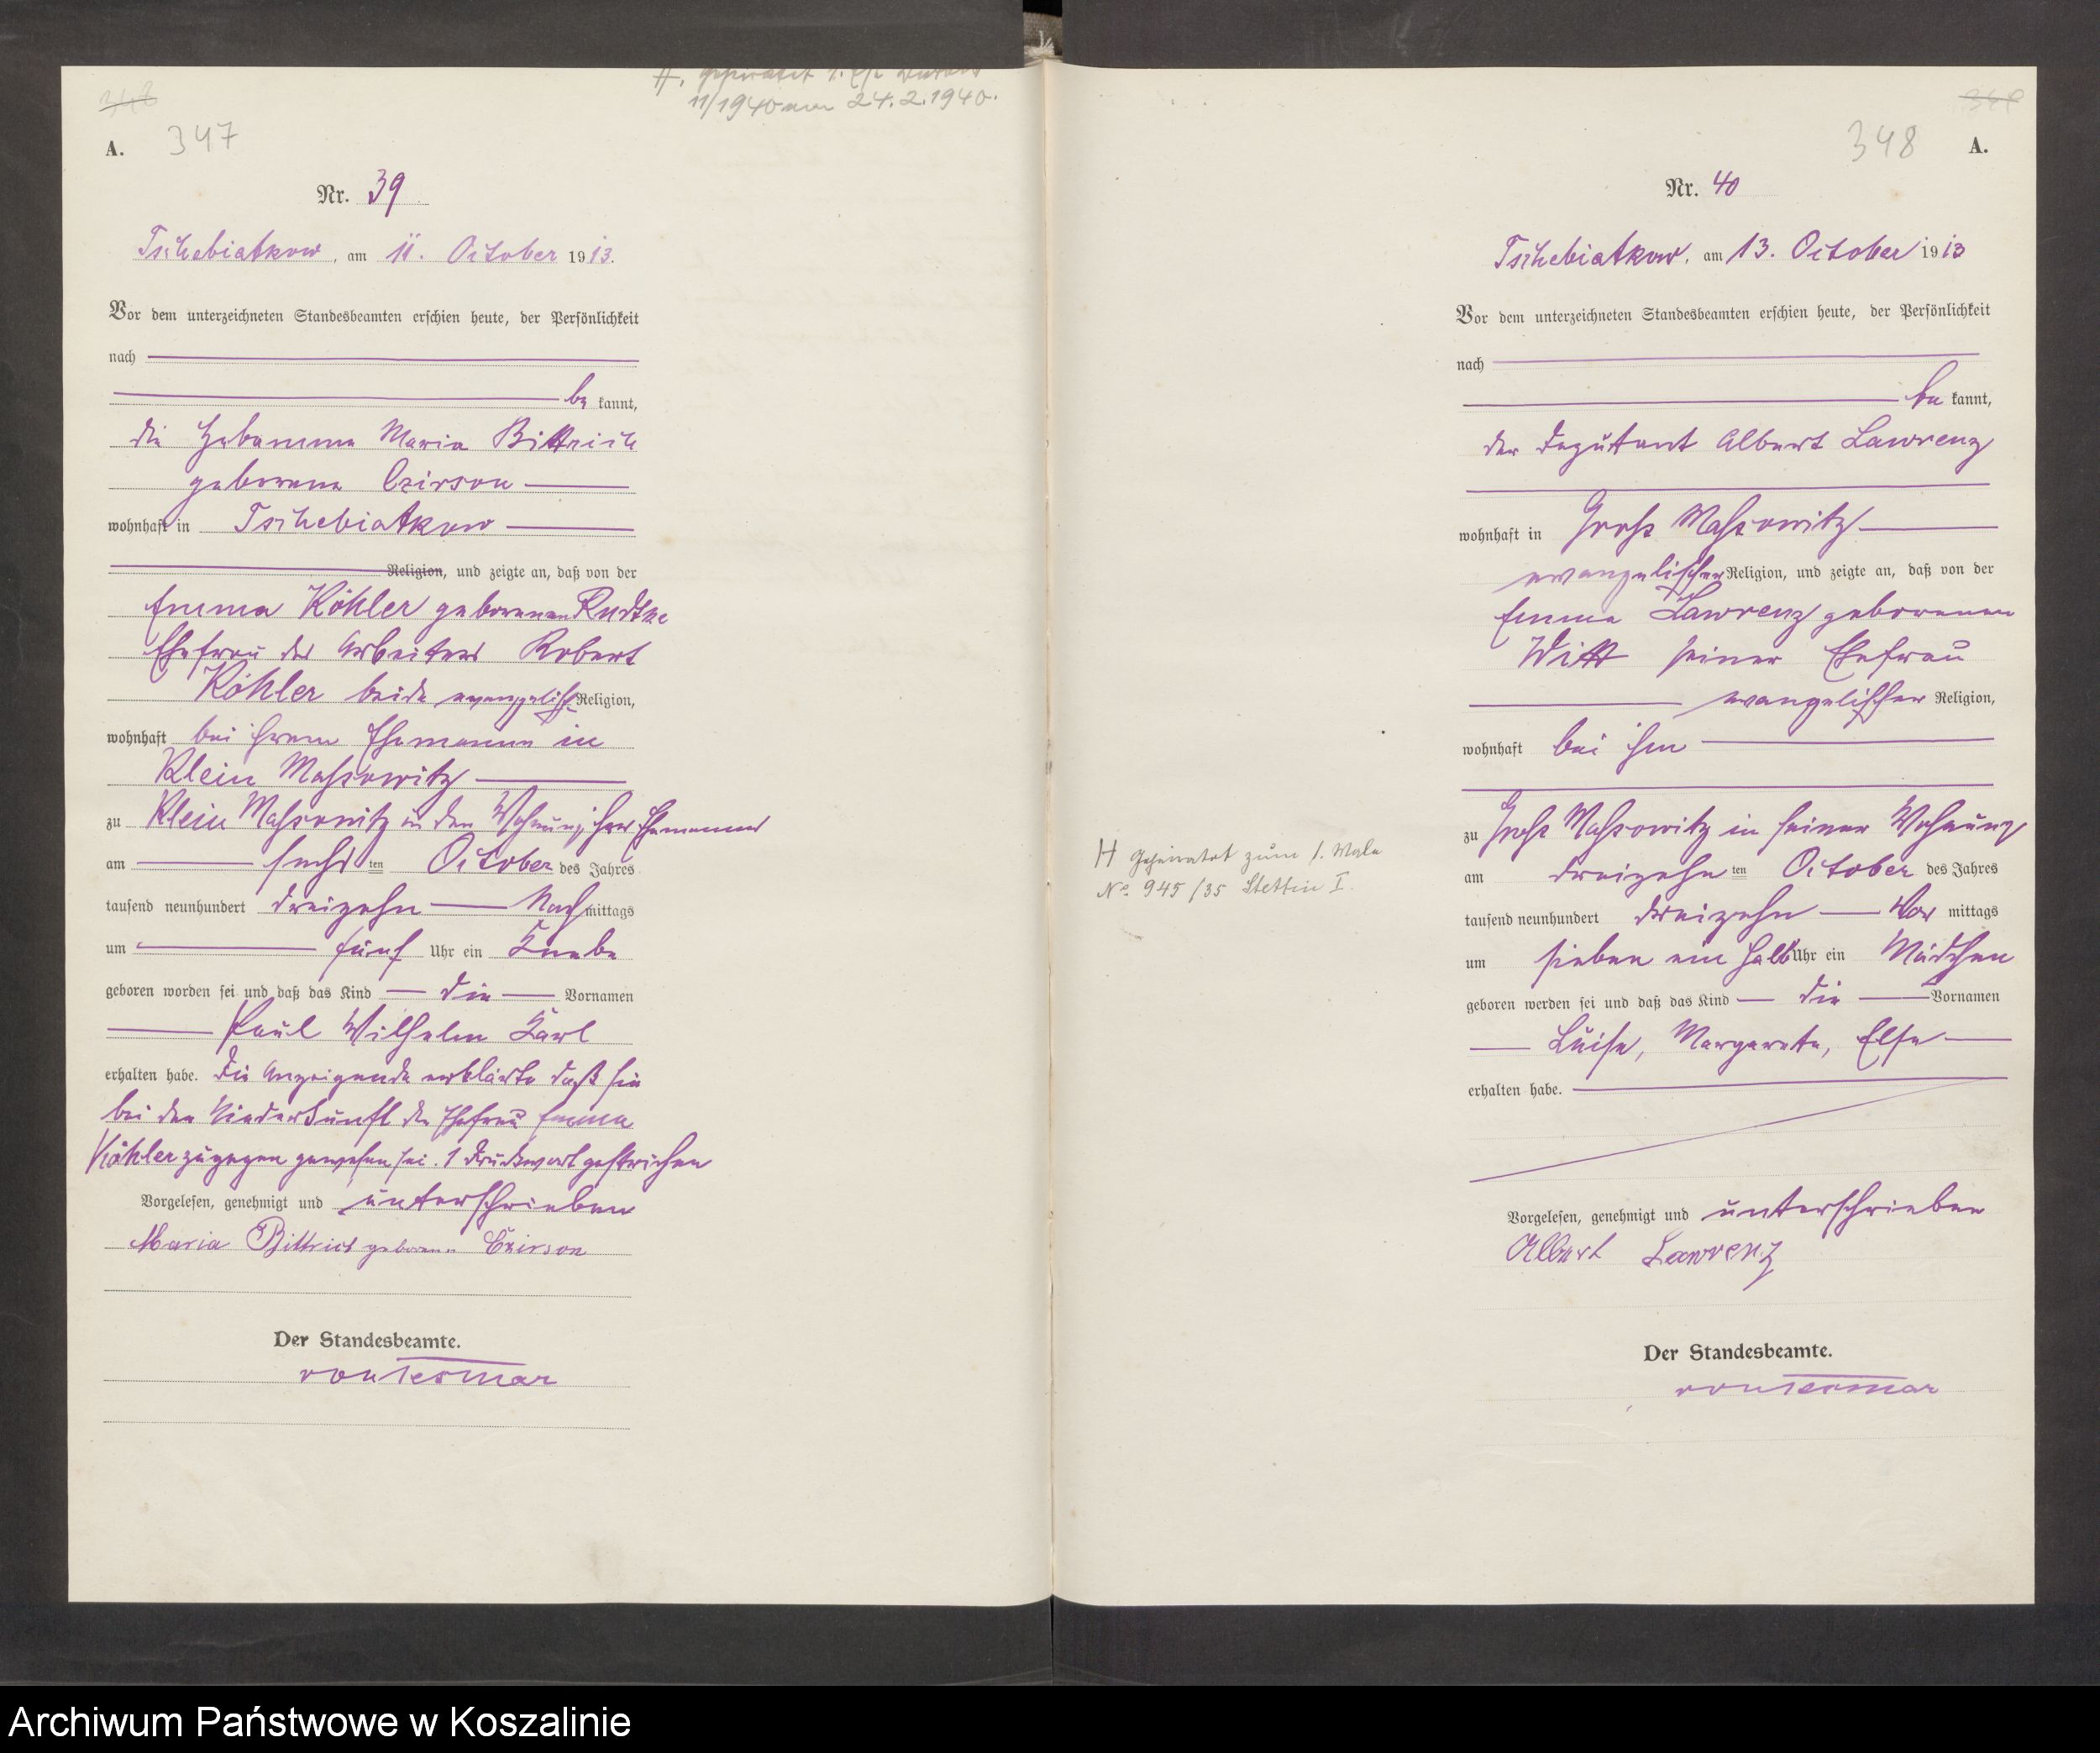 348
H. geheiratet 1. Ehe
11/1940 am 24.2.1940.
A. 347
Nr. 39
Tschebiatkow, am 11. October 1913.
Vor dem unterzeichneten Standesbeamten erschien heute, der Persönlichkeit
nach
be kannt,
die Hebamme Maria Bittrich
geborene Czirson
wohnhaft in Tschebiatkow
Religion, und zeigte an, daß von der
Emma Köhler geborenen Radtke
Ehefrau des Arbeiters Robert
Köhler beide evangelisch Religion,
wohnhaft bei ihrem Ehemanne in
Klein Massowitz
zu Klein Massowitz in der Wohnung ihres Ehemannes
am sechs ten October des Jahres
tausend neunhundert dreizehn Nach mittags
um fünf Uhr ein Knabe
geboren worden sei und daß das Kind die Vornamen
Paul Wilhelm Karl
erhalten habe. Die Anzeigende erklärte daß sie
bei der Niederkunft der Ehefrau Emma
Köhler zugegen gewesen sei. 1 Druckwort gestrichen
Vorgelesen, genehmigt und unterschrieben
Maria Bittrich geborene Czirson
Der Standesbeamte.
von Tesmar
348 A.
Nr. 40
Tschebiatkow, am 13. October 1913
Vor dem unterzeichneten Standesbeamten erschien heute, der Persönlichkeit
nach
be kannt,
der Deputant Albert Lawrenz
wohnhaft in Gross Massowitz
evangelischer Religion, und zeigte an, daß von der
Emma Lawrenz geborenen
Witt seiner Ehefrau
evangelischer Religion,
wohnhaft bei ihm
zu Gross Massowitz in seiner Wohnung
am dreizehn ten October des Jahres
tausend neunhundert dreizehn Vor mittags
um sieben ein halb Uhr ein Mädchen
geboren worden sei und daß das Kind die Vornamen
Luise, Margarete, Else
erhalten habe.
Vorgelesen, genehmigt und unterschrieben
Albert Lawrenz
Der Standesbeamte.
von Tesmar
H geheiratet zum 1. Male
No. 945/35 Stettin I.
Archiwum Państwowe w Koszalinie